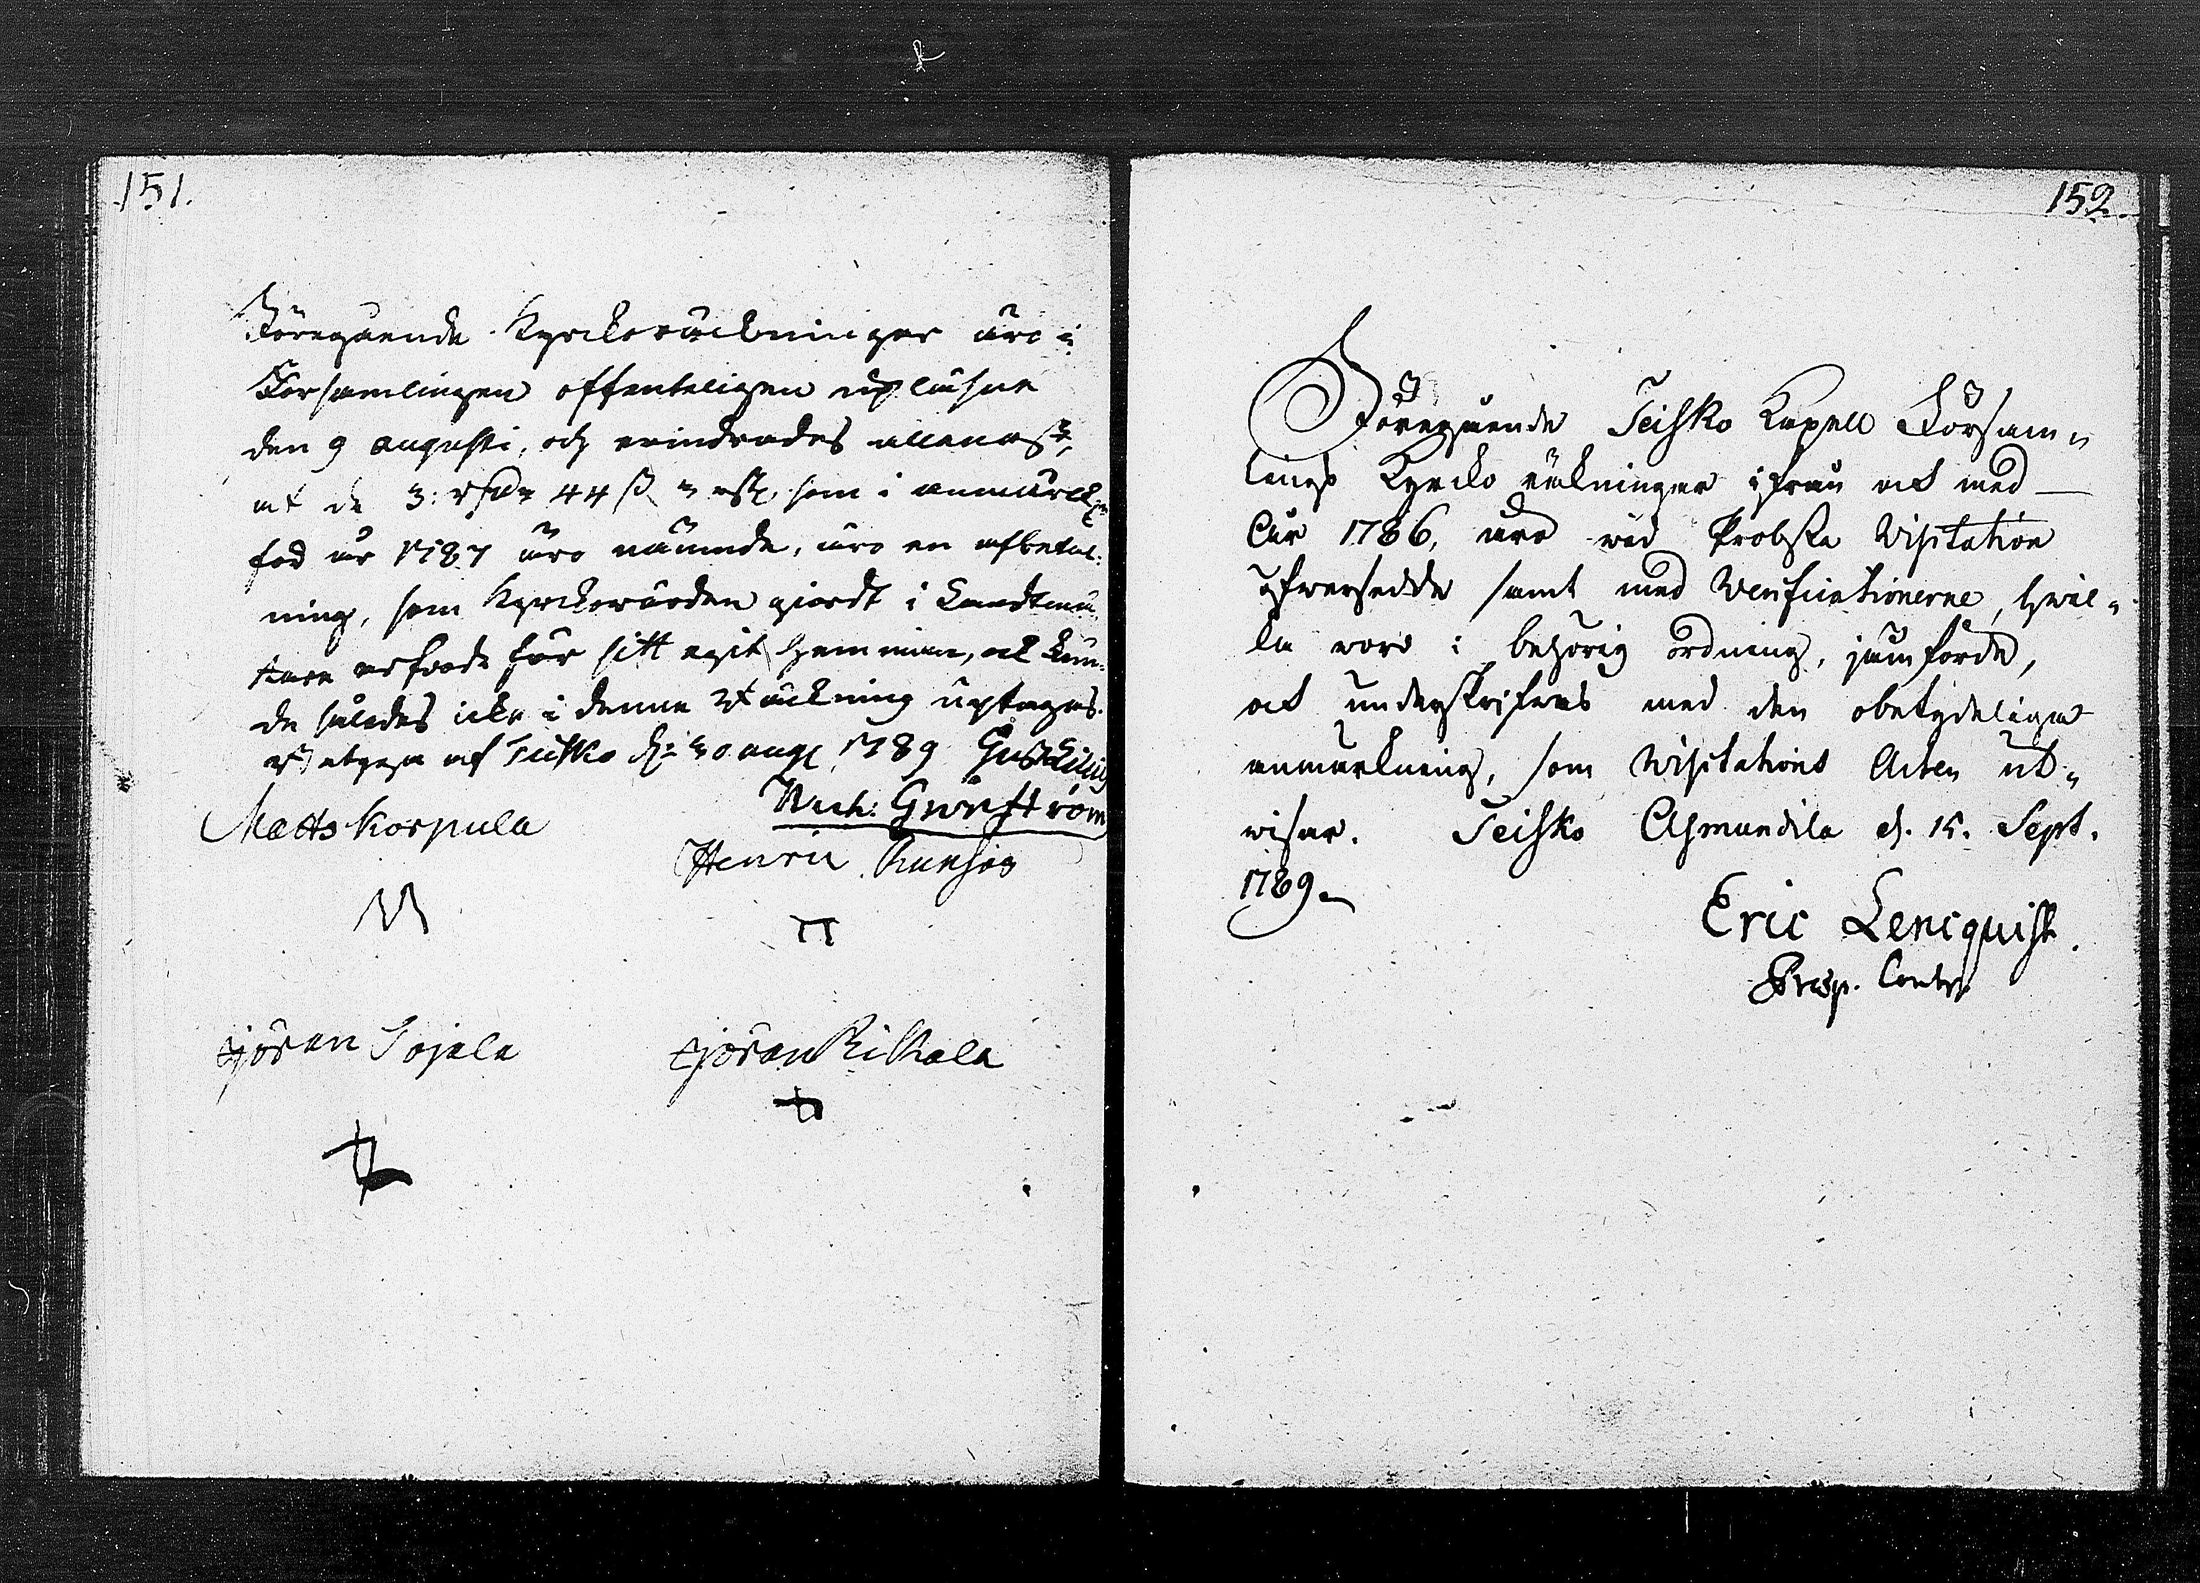 151.
Föregående Kyrckoräckningar äro i
Församlingen offenteligen upläsne
den 9 augusti, och erindrades allenast,
at de 3: rd 44 ß som i anmärck
för år 1787 äro nämnde, äro en afbetal-
ning, som Kyrckovärden giordt i Landtmä-
tare arfvode för sitt egit hemman, och kun-
de således icke i denna Räckning uptagas.
af Teisko d: 30 aug 1789 Gust Lilius
Mich: Grönström
Matts Korpula
Henric
Gjöran Sojala
Göran Rikala
152.
Föregående Teisko Kapell Försam-
lings Kyrcko räkningar ifrån och med
år 1786, äro wid Probsta Visitation
öfwersedde samt med Verificationerne, hwil-
ka voro i behörig ordning, jämförde,
och underskrifvas med den obetydeliga
anmärkning, som Visitations Acten ut-
wisar. Teisko Asmundila d. 15. Sept.
1789.
Eric Lencquist.
Præp. Contr